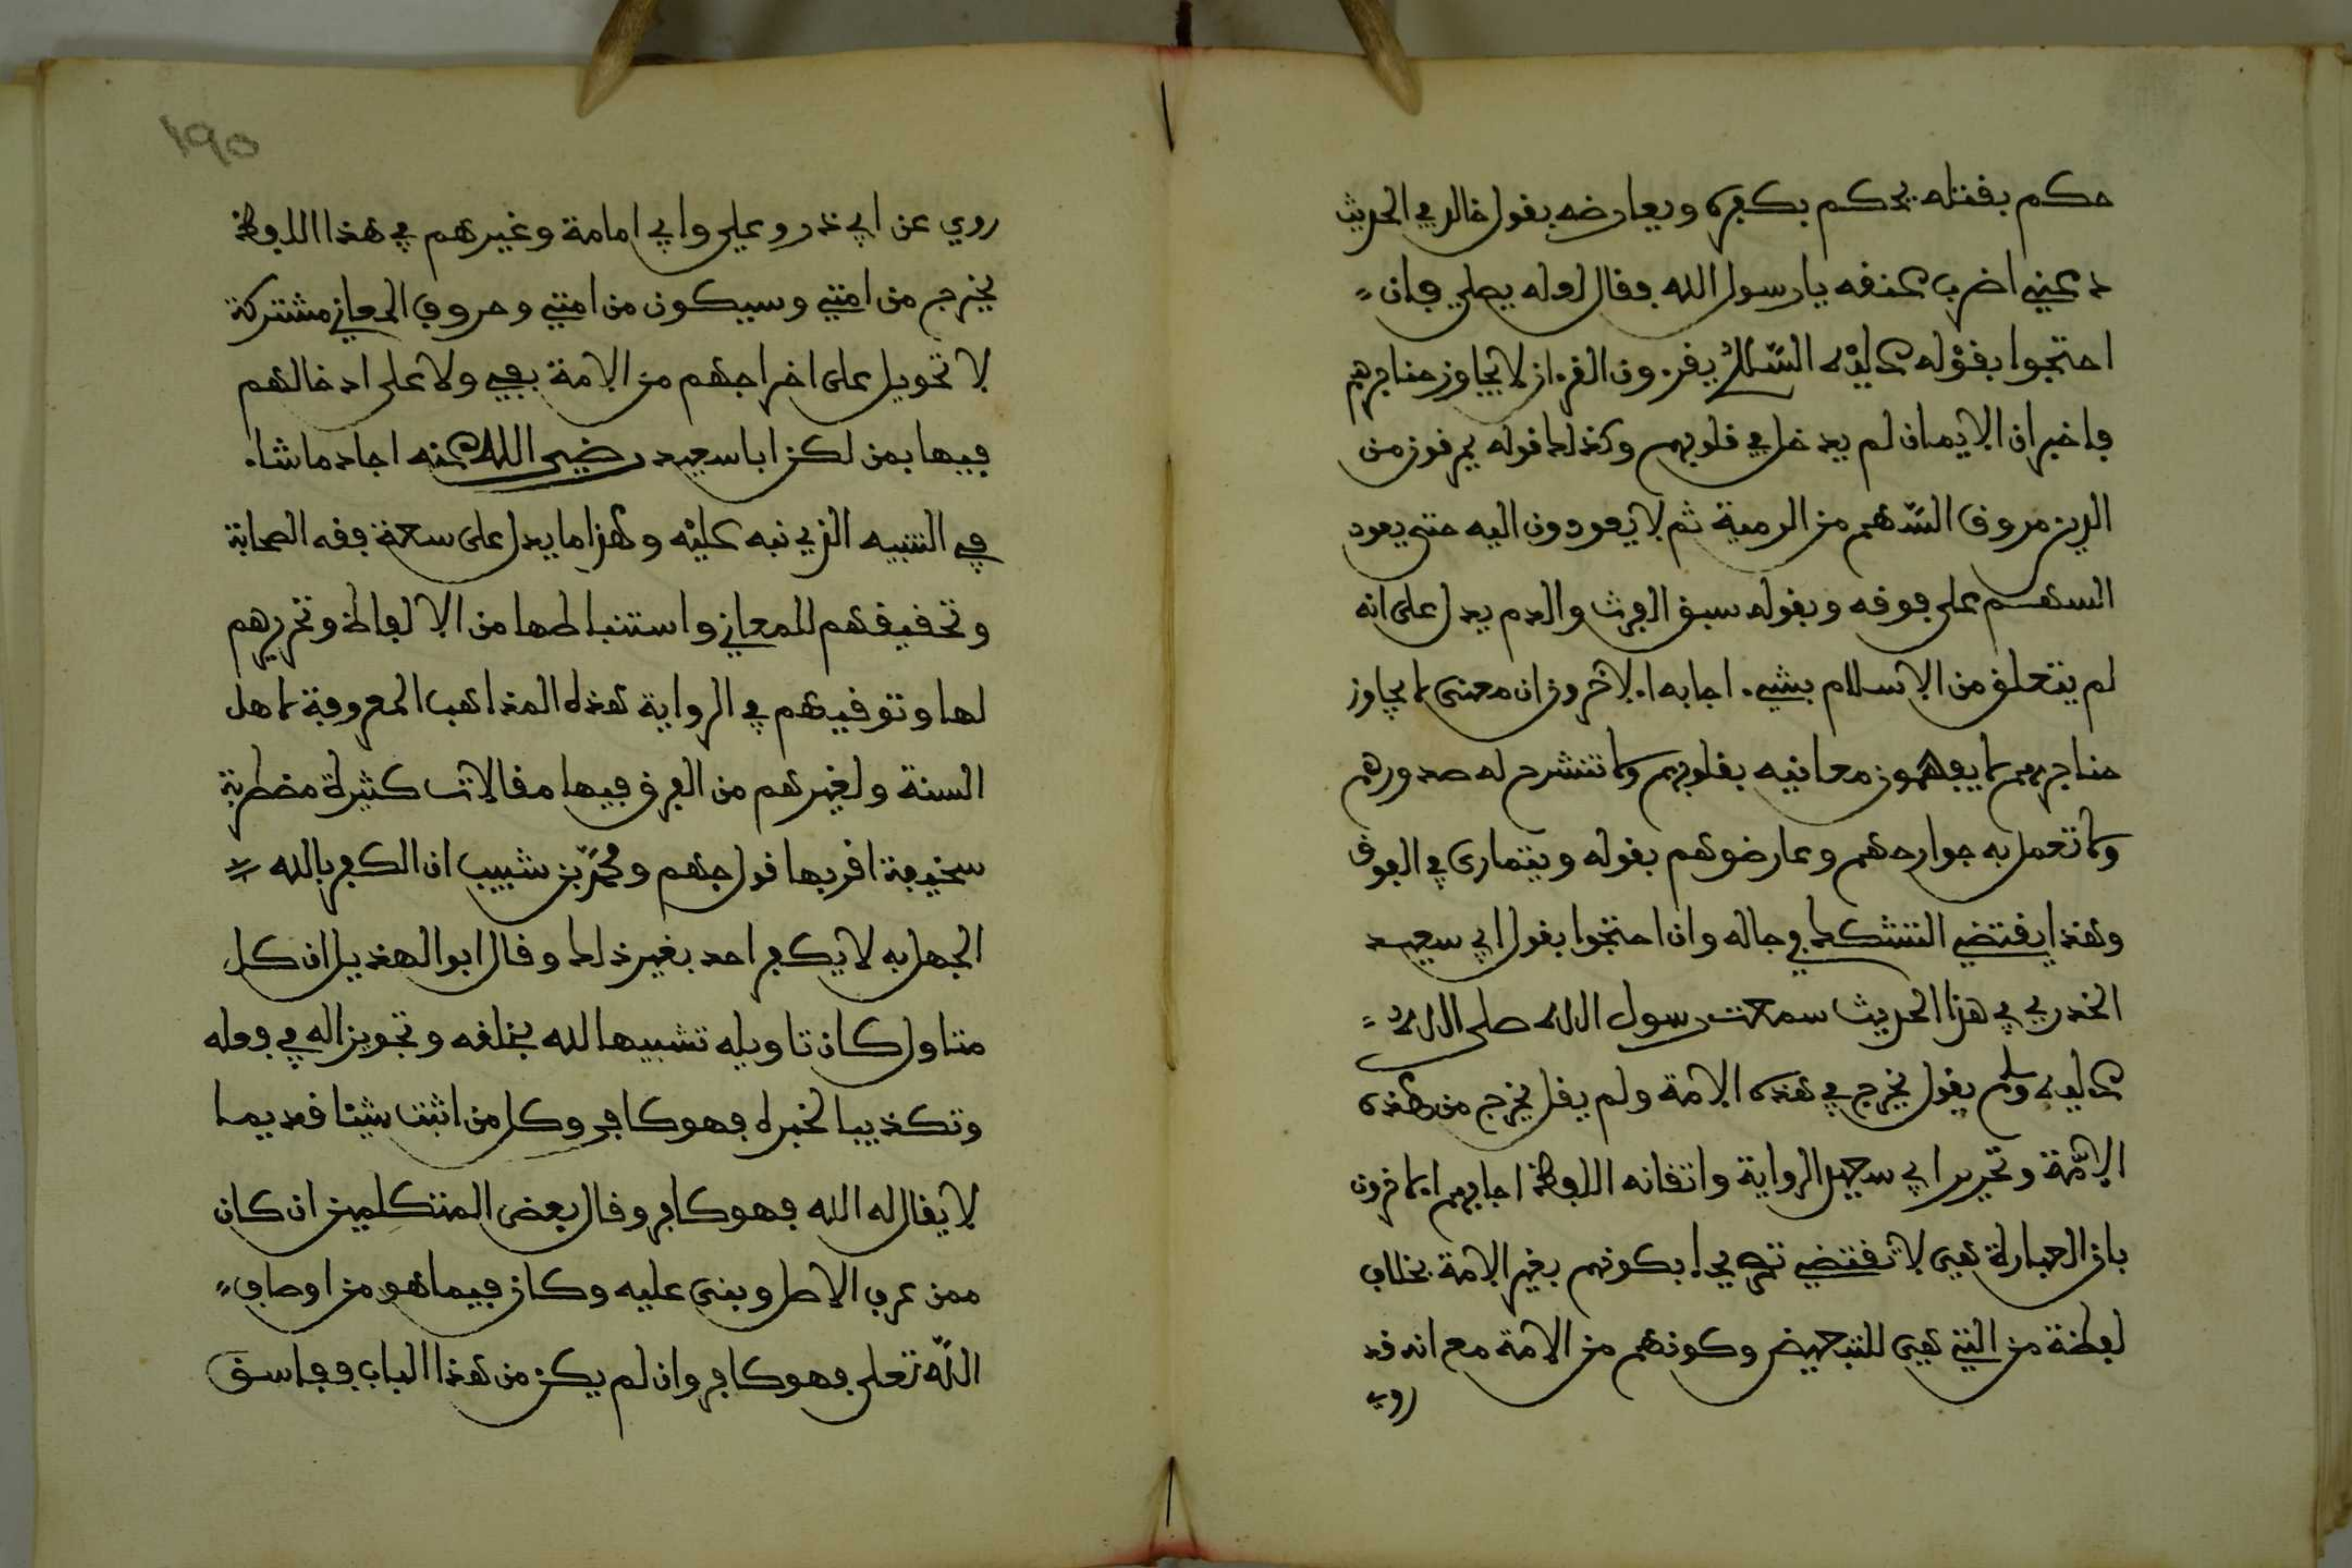 حكم بقتله يحكم بكفره ويعارضه بقول خالد في الحديث
دعني اضرب عنقه يا رسول الله فقال لعله يصلي فان
احتجوا بقوله عليه السلام يقرءون القرءان لا يجاوز حناجرهم
فاخبر ان الايمان لم يدخل في قلوبهم وكذلك قوله يمرقون من
الدين مروق السهم من الرمية ثم لا يعودون اليه حتى يعود
السهم على فوقه وبقوله سبق الفرث والدم يدل على انه
لم يتعلق من الاسلام بشيء اجابه الاخرون ان معنى لا يجاوز
حناجرهم لا يفهمون معانيه بقلوبهم ولا تنشرح له صدورهم
ولا تعمل به جوارحهم وعارضوهم بقوله ويتمارى في الفوق
وهذا يقتضي التشكك في حاله وان احتجوا بقول ابي سعيد
الخدري في هذا الحديث سمعت رسول الله صلى الله
عليه وسلم يقول يخرج في هذه الامة ولم يقل يخرج من هذه
الامة وتحرير ابي سعيد الرواية واتقانه اللفظ اجابهم الاخرون
بان العبارة بفي لا تقتضي تصريحا بكونهم بغير الامة بخلاف
لفظة من التي هي للتبعيض وكونهم من الامة مع انه قد
روي
١٩٥
روي عن ابي ذر وعلي وابي امامة وغيرهم في هذا اللفظ
يخرج من امتي وسيكون من امتي وحروف المعاني مشتركة
لا تعويل على اخراجهم من الامة بفي ولا على ادخالهم
فيها بمن لكن ابا سعيد رضي الله عنه اجاد ما شاء
في التنبيه الذي نبه عليه وهذا ما يدل على سعة فقه الصحابة
وتحقيقهم للمعاني واستنباطها من الالفاظ وتحريرهم
لها وتوقيهم في الرواية هذه المذاهب المعروفة لاهل
السنة ولغيرهم من الفرق فيها مقالات كثيرة مضطربة
سخيفة اقربها قول جهم ومحمد بن شبيب ان الكفر بالله
الجهل به لا يكفر احد بغير ذلك وقال ابو الهذيل ان كل
متاول كان تاويله تشبيها لله بخلقه وتجويزا له في فعله
وتكذيبا لخبره فهو كافر وكل من اثبت شيئا قديما
لا يقال له الله فهو كافر وقال بعض المتكلمين ان كان
ممن عرف الاصل وبنى عليه وكان فيما هو من اوصاف
الله تعلى فهو كافر وان لم يكن من هذا الباب ففاسق